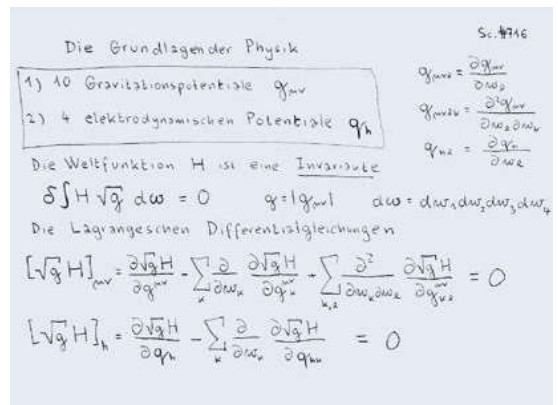 Die Grundlagen der Physik
1) 10 Gravitationspotentiale g_μν
2) 4 elektrodynamischen Potentiale q_h
g_μνl = ∂g_μν / ∂w_l
g_μνlk = ∂²g_μν / ∂w_l ∂w_k
q_hl = ∂q_h / ∂w_l
Die Weltfunktion H ist eine Invariante
δ∫H √g dω = 0 g = |g_μν| dω = dw₁dw₂dw₃dw₄
Die Lagrangeschen Differentialgleichungen
[√g H]_μν = ∂√g H / ∂g^μν - ∑_k ∂/∂w_k ∂√g H / ∂g^μν_k + ∑_k,l ∂² / ∂w_k ∂w_l ∂√g H / ∂g^μν_kl = 0
[√g H]_h = ∂√g H / ∂q_h - ∑_k ∂/∂w_k ∂√g H / ∂q_hk = 0